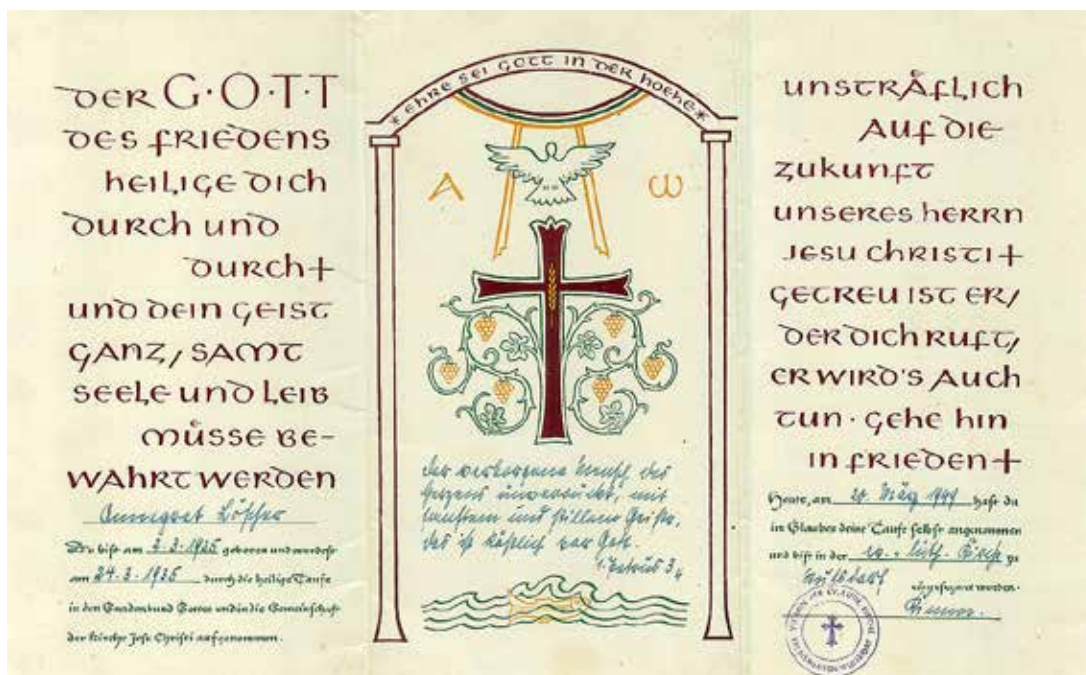 DER G·O·T·T
DES FRIEDENS
HEILIGE DICH
DURCH UND
DURCH+
UND DEIN GEIST
GANZ/SAMT
SEELE UND LEIB
MÜSSE BE-
WAHRT WERDEN
Annegret Löscher
Du bist am 2.3.1935 geboren und wurdest
am 24.3.1935 durch die heilige Taufe
in den Gnadenbund Gottes und in die Gemeinschaft
der Kirche Jesu Christi aufgenommen.
*EHRE SEI GOTT IN DER HOEHE*
A ω
der verborgene Mensch des
Herzens unverrückt, mit
sanftem und stillem Geiste,
das ist köstlich vor Gott.
1. Petrus 3,4
UNSTRÄFLICH
AUF DIE
ZUKUNFT
UNSERES HERRN
JESU CHRISTI+
GETREU IST ER/
DER DICH RUFT/
ER WIRD'S AUCH
TUN·GEHE HIN
IN FRIEDEN+
Heute, am 20. März 1949 hast du
im Glauben deine Taufe selbst angenommen
und bist in der ev.-luth. Kirche zu
eingesegnet worden.